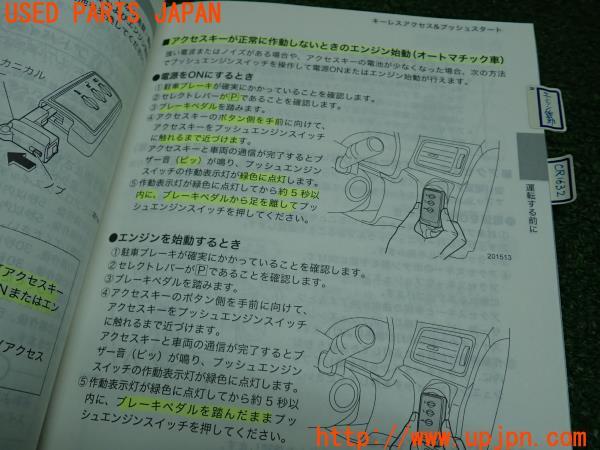 USED PARTS JAPAN
キーレスアクセス&プッシュスタート
■アクセスキーが正常に作動しないときのエンジン始動(オートマチック車)
強い電波またはノイズがある場合や、アクセスキーの電池が少なくなった場合、次の方法
でプッシュエンジンスイッチを操作して電源ONまたはエンジン始動が行えます。
●電源をONにするとき
①駐車ブレーキが確実にかかっていることを確認します。
②セレクトレバーがPであることを確認します。
③ブレーキペダルを踏みます。
④アクセスキーのボタン側を手前に向けて、
アクセスキーをプッシュエンジンスイッチ
に触れるまで近づけます。
アクセスキーと車両の通信が完了するとブ
ザー音(ピッ)が鳴り、プッシュエンジンス
イッチの作動表示灯が緑色に点灯します。
⑤作動表示灯が緑色に点灯してから約5秒以
内に、ブレーキペダルから足を離してプッ
シュエンジンスイッチを押してください。
201513
●エンジンを始動するとき
①駐車ブレーキが確実にかかっていることを確認します。
②セレクトレバーがPであることを確認します。
③ブレーキペダルを踏みます。
④アクセスキーのボタン側を手前に向けて、
アクセスキーをプッシュエンジンスイッチ
に触れるまで近づけます。
アクセスキーと車両の通信が完了するとブ
ザー音(ピッ)が鳴り、プッシュエンジンス
イッチの作動表示灯が緑色に点灯します。
⑤作動表示灯が緑色に点灯してから約5秒以
内に、ブレーキペダルを踏んだままプッ
シュエンジンスイッチを押してください。
運転する前に
CR1632
カニカル
ノブ
アクセスキー
Nまたはエン
アクセス
(株)ユーパーツ
https://www.upjpn.com/